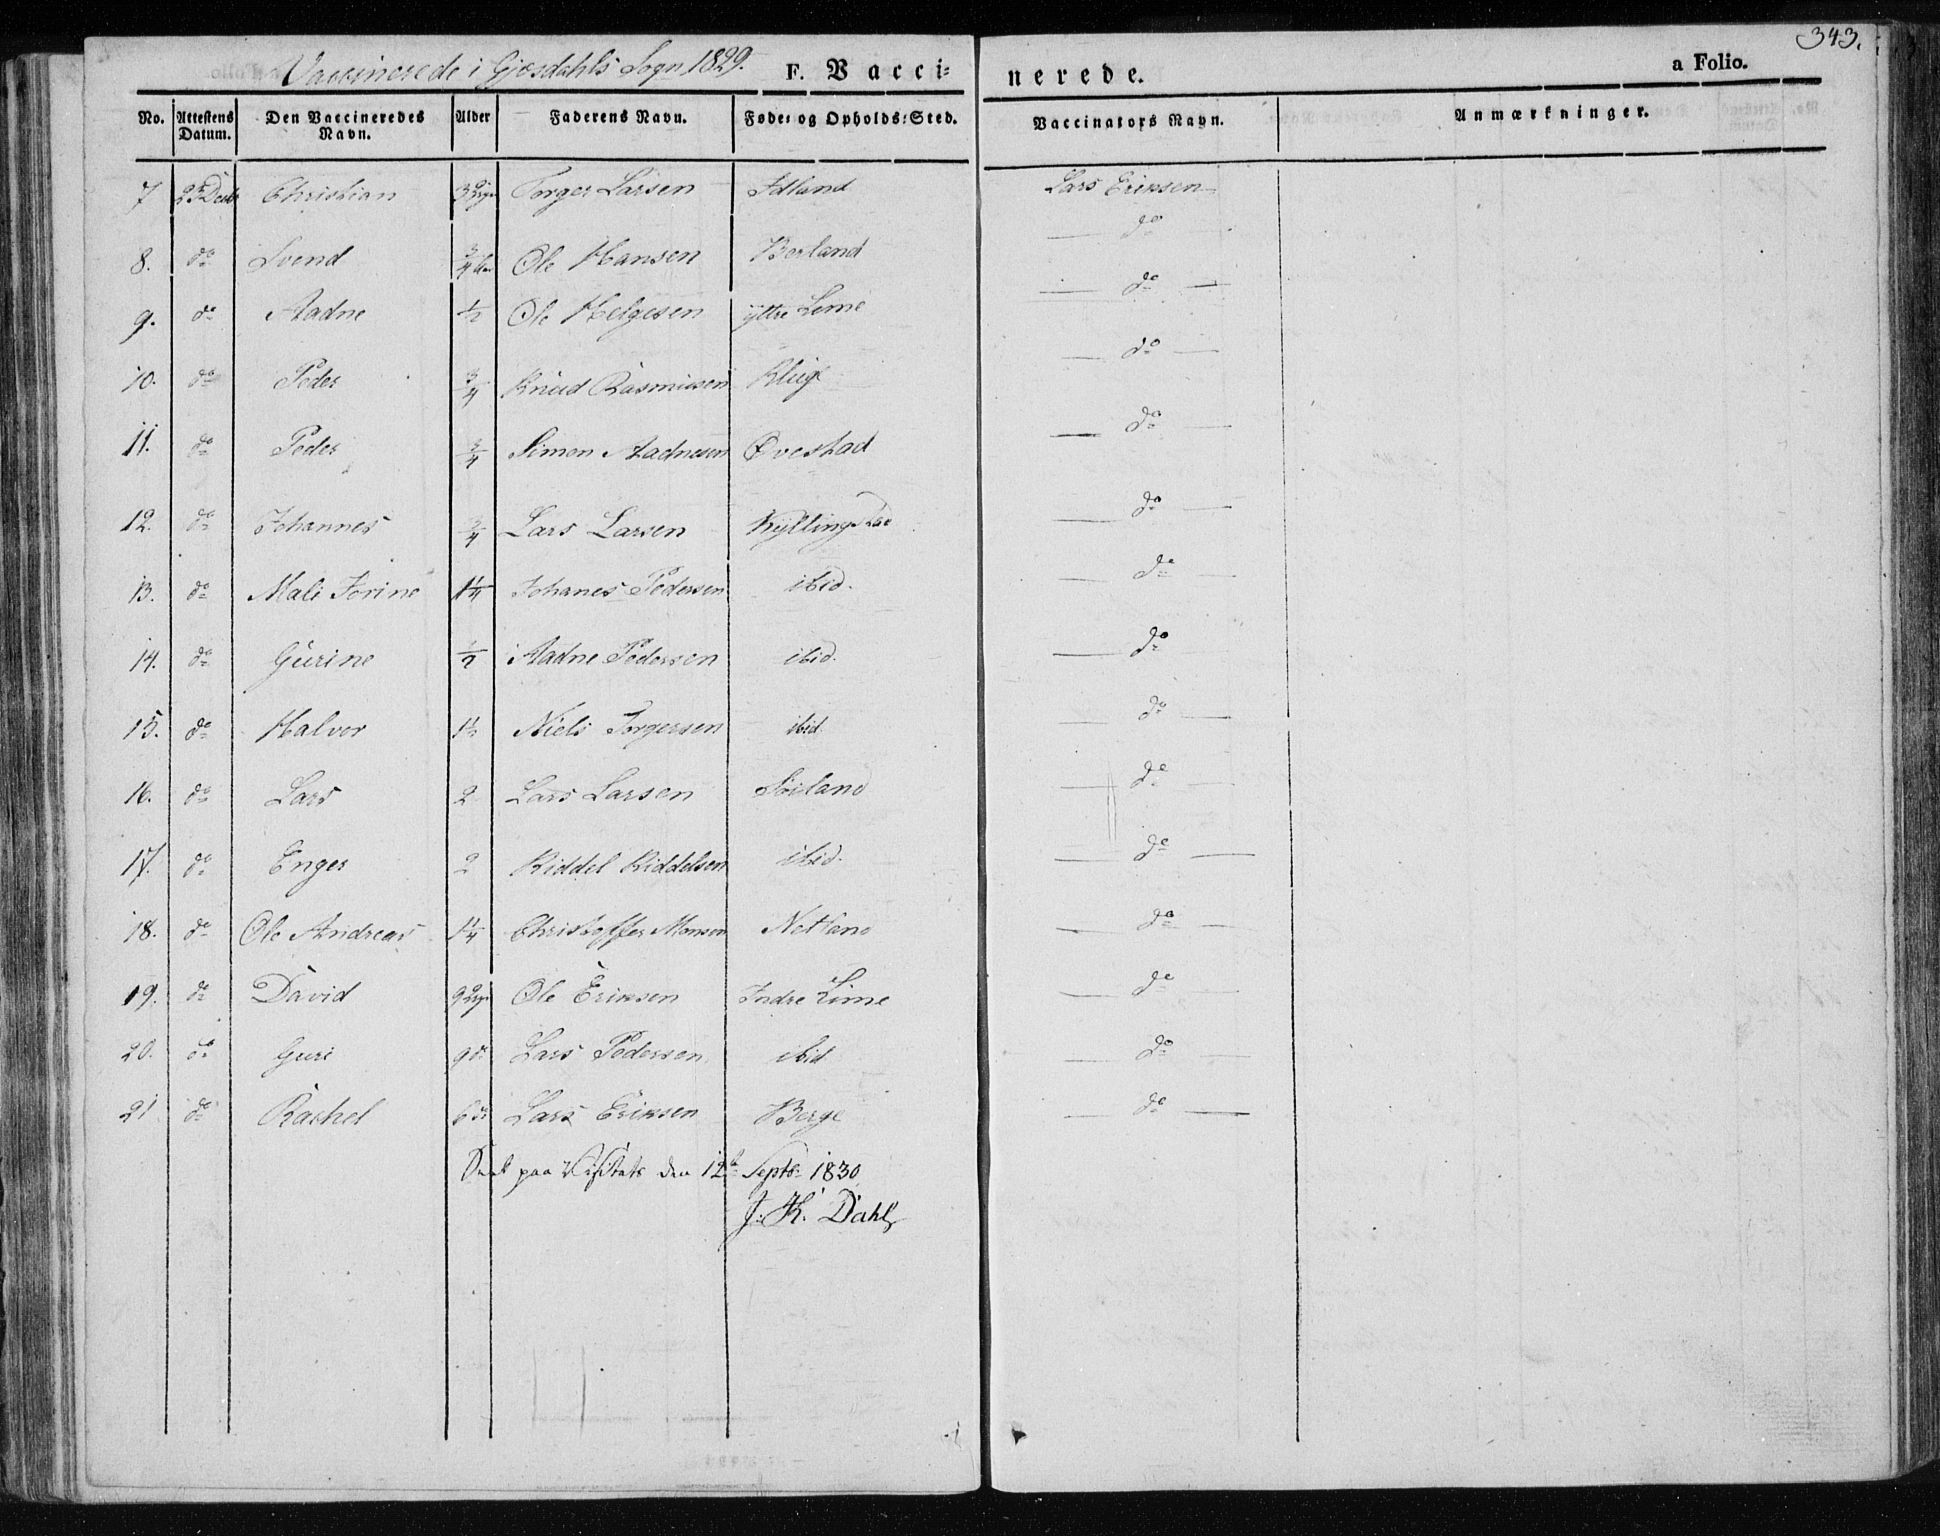 343.
Vaccinerede i Gjesdahls Sogn 1829. F. Vaccinerede. a Folio.
No. Attestens Datum. Den Vaccineredes Navn. Alder Faderens Navn. Føde- og Opholds-Sted. Vaccinators Navn. Anmærkninger.
7 Christian Torger Larsen Idland Lars Eriksen
8. do Svend 3/4 Ole Hansen Berland do
9. do Aadne 1/2 Ole Helgesen ÿttre Lime do
10. do Peder 3/4 Knud Rasmussen Kluge do
11. do Peder 3/4 Simon Aadnesen Øvestad do
12. do Johannes 3/4 Lars Larsen do
13. do Mali Jorine 1 1/4 Johanes Pedersen ibid. do
14. do Gurine 1/2 Aadne Pedersen ibid. do
15. do Halvor 1 1/2 Niels Torgersen ibid do
16. do Lars 2 Lars Larsen Søiland do
17. do Enger 2 Riddel Riddelsen ibid. do
18. do Ole Andreas 1 1/4 Christoffer Monsen Netland do
19. do David Ole Eriksen Indre Lime do
20. do Guri 9 do Lars Pedersen ibid do
21 do Rachel 6 do Lars Eriksen Berge do
Seet paa Visitats den 12te Septb: 1830
J. K. Dahl